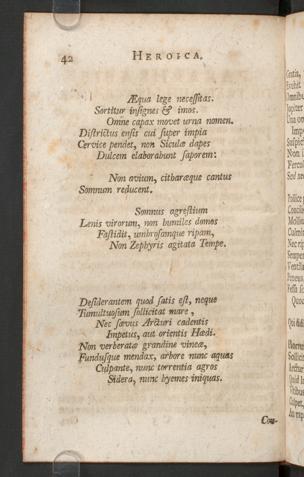 42 HEROICA.
Æqua lege necessitas.
Sortitur insignes & imos.
Omne capax movet urna nomen.
Districtus ensis cui super impia
Cervice pendet, non Siculæ dapes
Dulcem elaborabunt saporem:
Non avium, citharæque cantus
Somnum reducent.
Somnus agrestium
Lenis virorum, non humiles domos
Fastidit, umbrosamque ripam,
Non Zephyris agitata Tempe.
Desiderantem quod satis est, neque
Tumultuosum sollicitat mare,
Nec sævus Arcturi cadentis
Impetus, aut orientis Hædi.
Non verberatæ grandine vineæ,
Fundusque mendax, arbore nunc aquas
Culpante, nunc torrentia agros
Sidera, nunc hyemes iniquas.
Con-